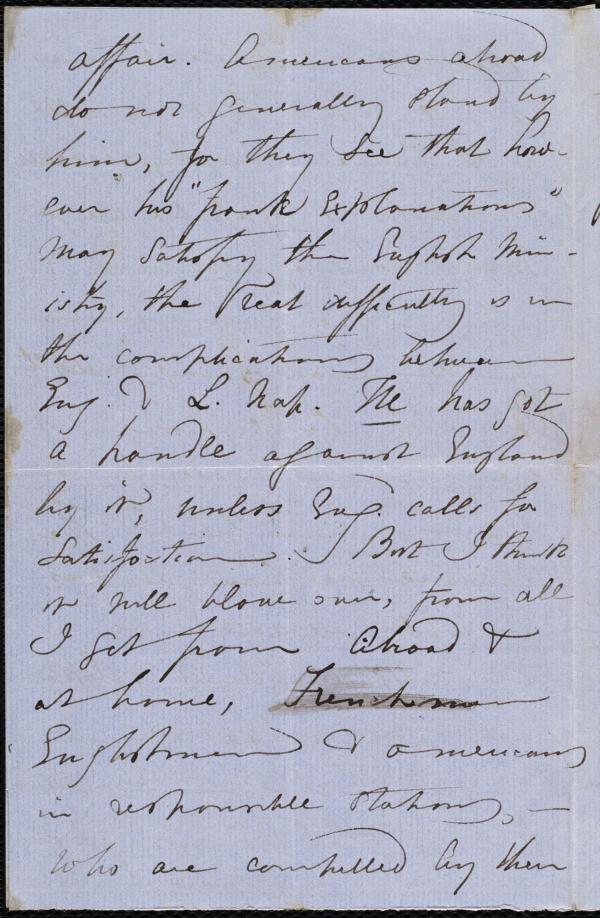 affair. Americans abroad
do not generally stand by
him, for they see that how-
ever his "frank explanations"
may satisfy the English Min-
istry, the real difficulty is in
the complications between
Eng. & L. Nap. He has got
a handle against England
by it, unless Eng. calls for
satisfaction. But I think
it will blow over, from all
I get from abroad &
at home, Frenchmen
Englishmen & Americans
in responsible stations, -
who are compelled by their